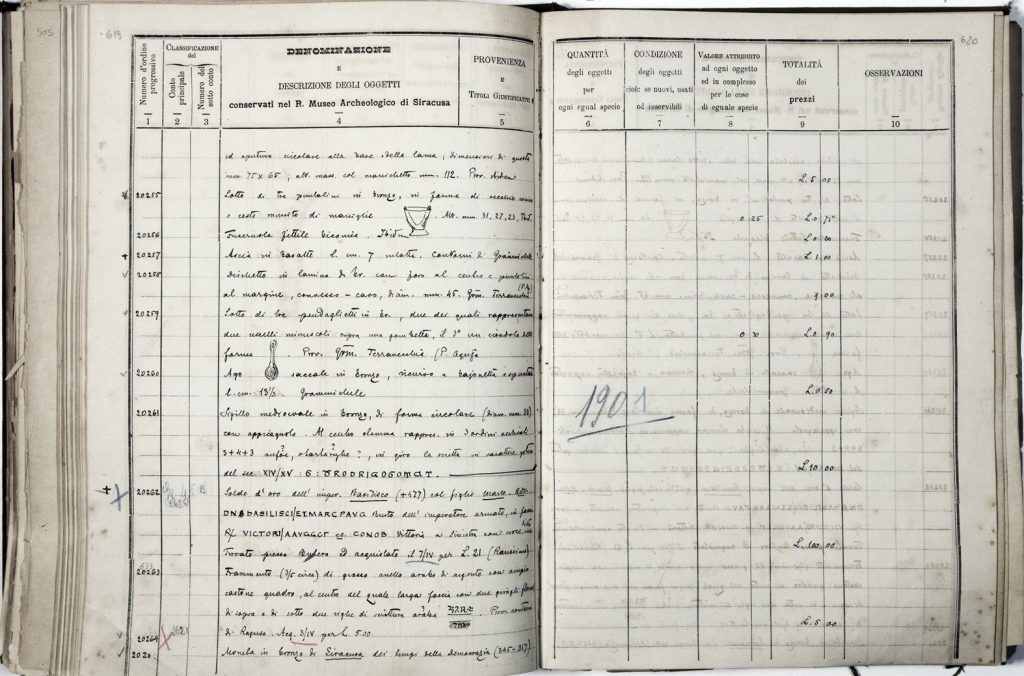 505
619
Numero d'ordine progressivo
CLASSIFICAZIONE del
Conto principale
Numero del sotto conto
DENOMINAZIONE
E
DESCRIZIONE DEGLI OGGETTI
conservati nel R. Museo Archeologico di Siracusa
PROVENIENZA
E
TITOLI GIUSTIFICATIVI
1 2 3 4 5
ed apertura circolare alla base della lama; dimensioni di questa
mm. 75 x 65, alt. mass. col manichetto mm. 112. Prov.
20255 Lotto di tre pendaglini in bronzo, in forma di secchio
o cesto munito di maniglie Alt. mm. 31, 27, 23.
20256 Fuseruola fittile biconica. Ibidem
20257 Ascia in basalte L. cm. 7 Contorni di Grammichele
20258 Dischetto in lamina di br. con foro al centro e
al margine, convesso-cavo, diam. mm. 45. Terravecchia
20259 Lotto di tre pendaglietti in br., due dei quali rappresentano
due uccelli minuscoli sopra una gambetta, il 3° un ciondolo della
forma Prov. Grm. Terravecchia (P. Aquija
20260 Ago saccale in bronzo, ricurvo a bajonetta
l. cm. 13½ Grammichele
20261 Sigillo medioevale in bronzo, di forma circolare (diam. mm. 23)
con appiccagnolo. Al centro stemma rappres. in 3 ordini
3+4+3 in giro la scritta in caratteri
del sec. XIV/XV
20262 Soldo d'oro dell' imper. Basilisco (+477) col figlio Marco
BASILISCI/ETMARCPAVG Busto dell' imperatore armato, in
R/ VICTORI/AAVGGG CONOB Vittoria a sinistra con croce
Trovato presso ed acquistato il 7/IV per L. 21
20263 Frammento (¾ circa) di grosso anello arabo di argento con ampio
castone quadro, al centro del quale larga fascia con due
di sopra e di sotto due righe di scrittura araba Prov.
di Ragusa Acq. 3/IV per L. 5.00
20264 Moneta in bronzo di Siracusa dei tempi della democrazia (345-317)
620
QUANTITÀ
degli oggetti
per
ogni egual specie
CONDIZIONE
degli oggetti
cioè: se nuovi, usati
od inservibili
VALORE ATTRIBUITO
ad ogni oggetto
ed in complesso
per le cose
di eguale specie
TOTALITÀ
dei
prezzi
OSSERVAZIONI
6 7 8 9 10
L. 5 00
0 25 L. 0 75
L. 0 20
L. 1 00
1 00
0 30 L. 0 90
L. 0 50
1901
L. 10 00
L. 100 00
L. 5 00